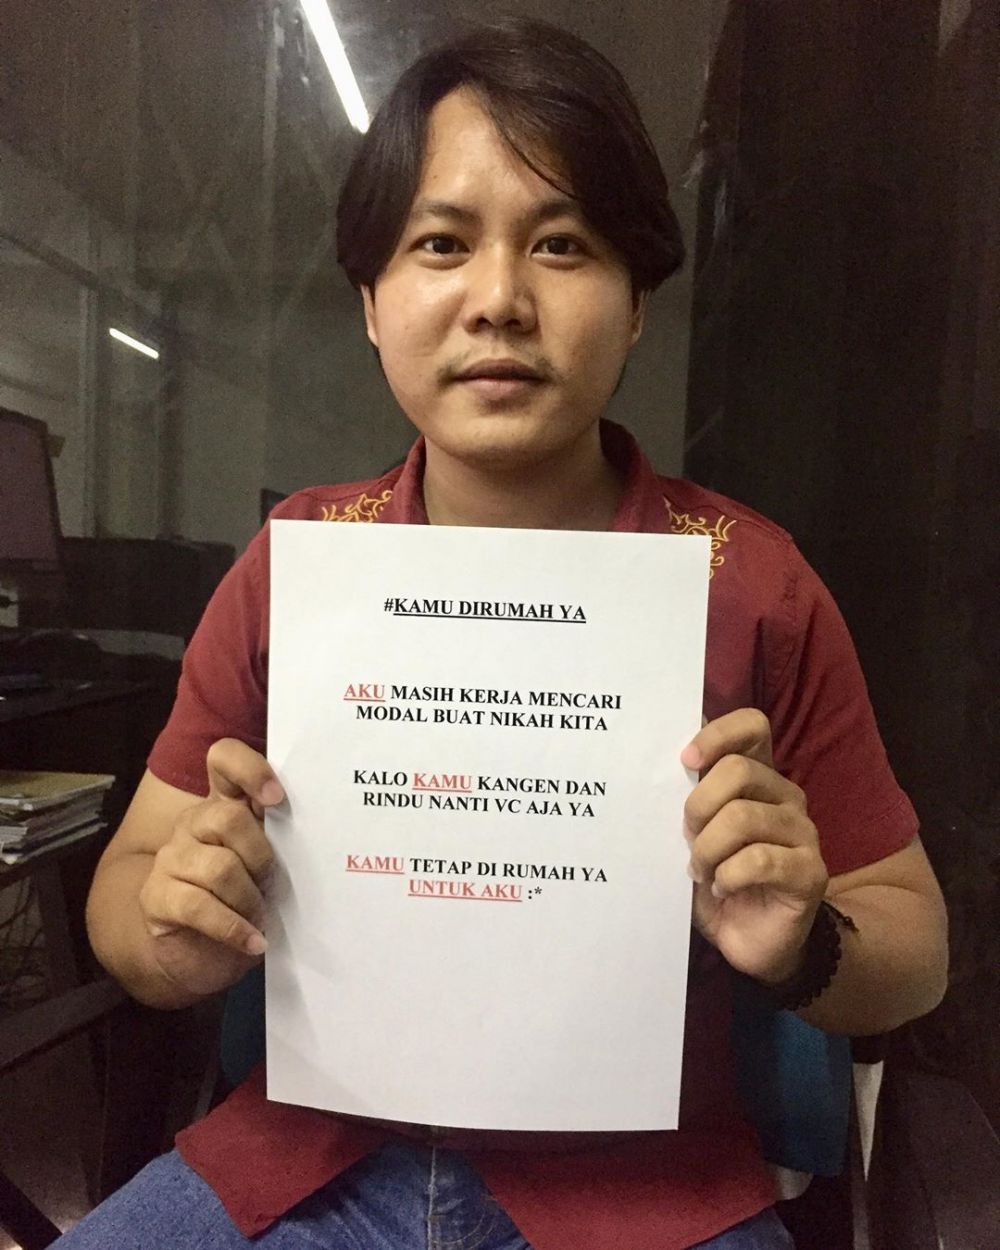 #KAMU DIRUMAH YA
AKU MASIH KERJA MENCARI
MODAL BUAT NIKAH KITA
KALO KAMU KANGEN DAN
RINDU NANTI VC AJA YA
KAMU TETAP DI RUMAH YA
UNTUK AKU :*